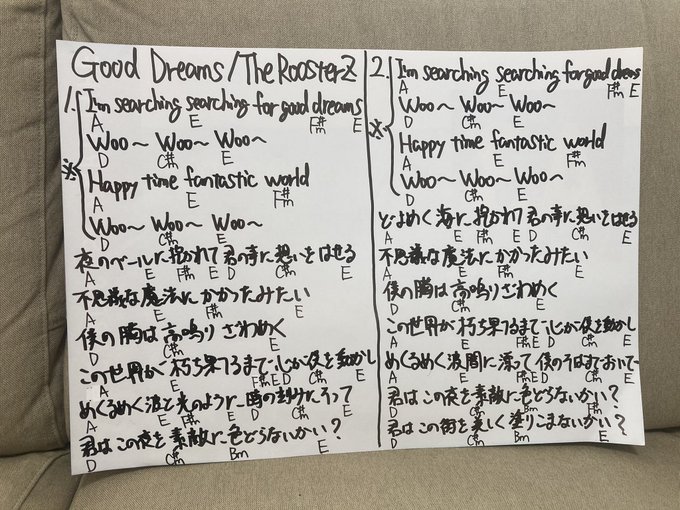 Good Dreams/The RoosterZ
1. I'm searching searching for good dreams
A E F#m E
※ Woo～ Woo～ Woo～
D C#m E
Happy time fantastic world
A E F#m
Woo～ Woo～ Woo～
D C#m E
夜のベールに抱かれて君の事に想いをはせる
A E F#m E D C#m E
不思議な魔法にかかったみたい
A E F#m E
僕の胸は高鳴りざわめく
D C#m E
この世界が朽ち果てるまで心が僕を動かし
A E F#m E D C#m E
めくるめく波と光のように時の刻みにそって
A E F#m E D C#m E
君はこの夜を素敵に色どらないかい?
D C#m Bm E
2. I'm searching searching for good dreams
A E F#m E
※ Woo～ Woo～ Woo～
D C#m E
Happy time fantastic world
A E F#m
Woo～ Woo～ Woo～
D C#m E
どよめく海に抱かれて君の事に想いをはせる
A E F#m E D C#m E
不思議な魔法にかかったみたい
A E F#m E
僕の胸は高鳴りざわめく
D C#m E
この世界が朽ち果てるまで心が僕を動かし
A E F#m E D C#m E
めくるめく波間に漂って僕のそばまでおいで
A E F#m E D C#m E
君はこの夜を素敵に色どらないかい?
D C#m Bm E
君はこの街を美しく塗りこまないかい?
D C#m Bm E